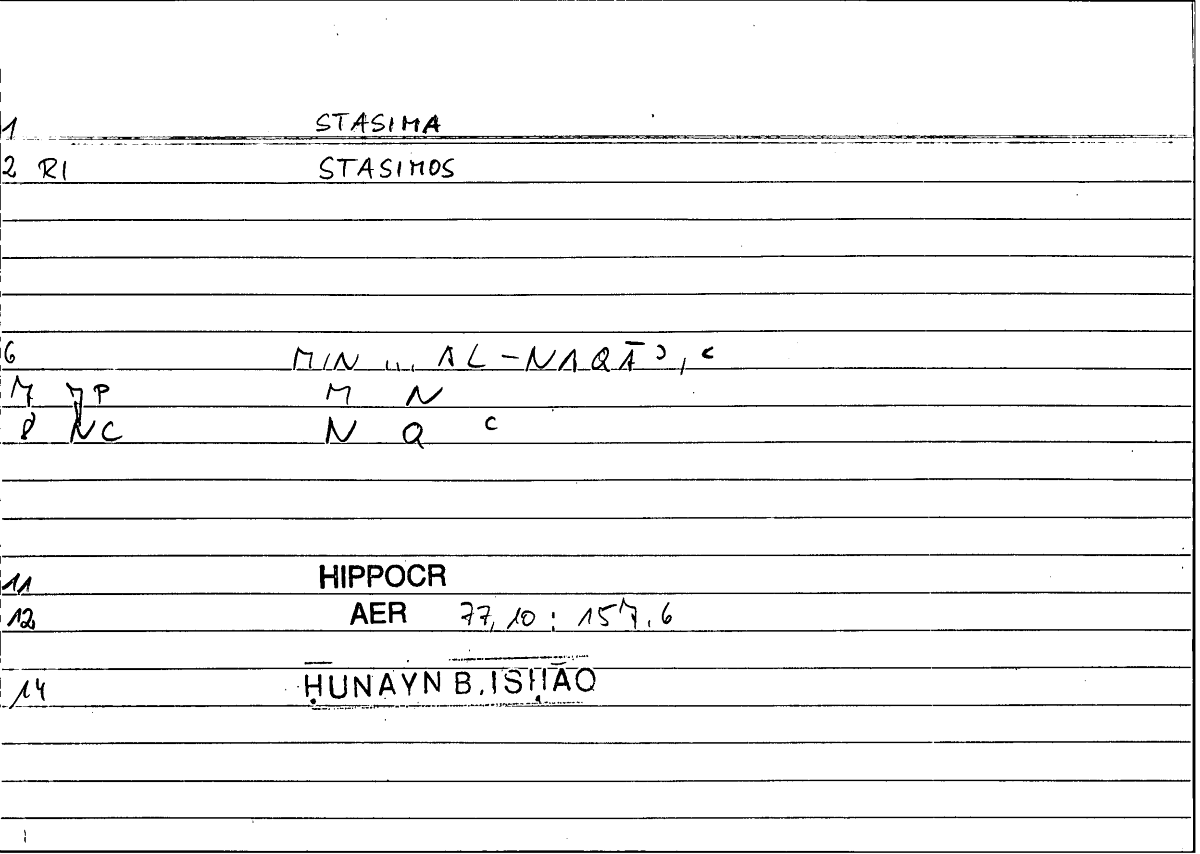 1 STASIMA
2 RI STASIMOS
6 MIN ... AL-NAQĀʾ, ʿ
7 7P M N
8 NC N Q ʿ
11 HIPPOCR
12 AER 77,10 : 157.6
14 ḤUNAYN B. ISḤĀQ